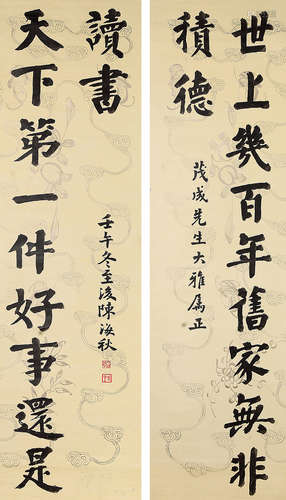 世上幾百年舊家無非
積德
茂成先生大雅屬正
天下第一件好事還是
讀書
壬午冬至後陳海秋